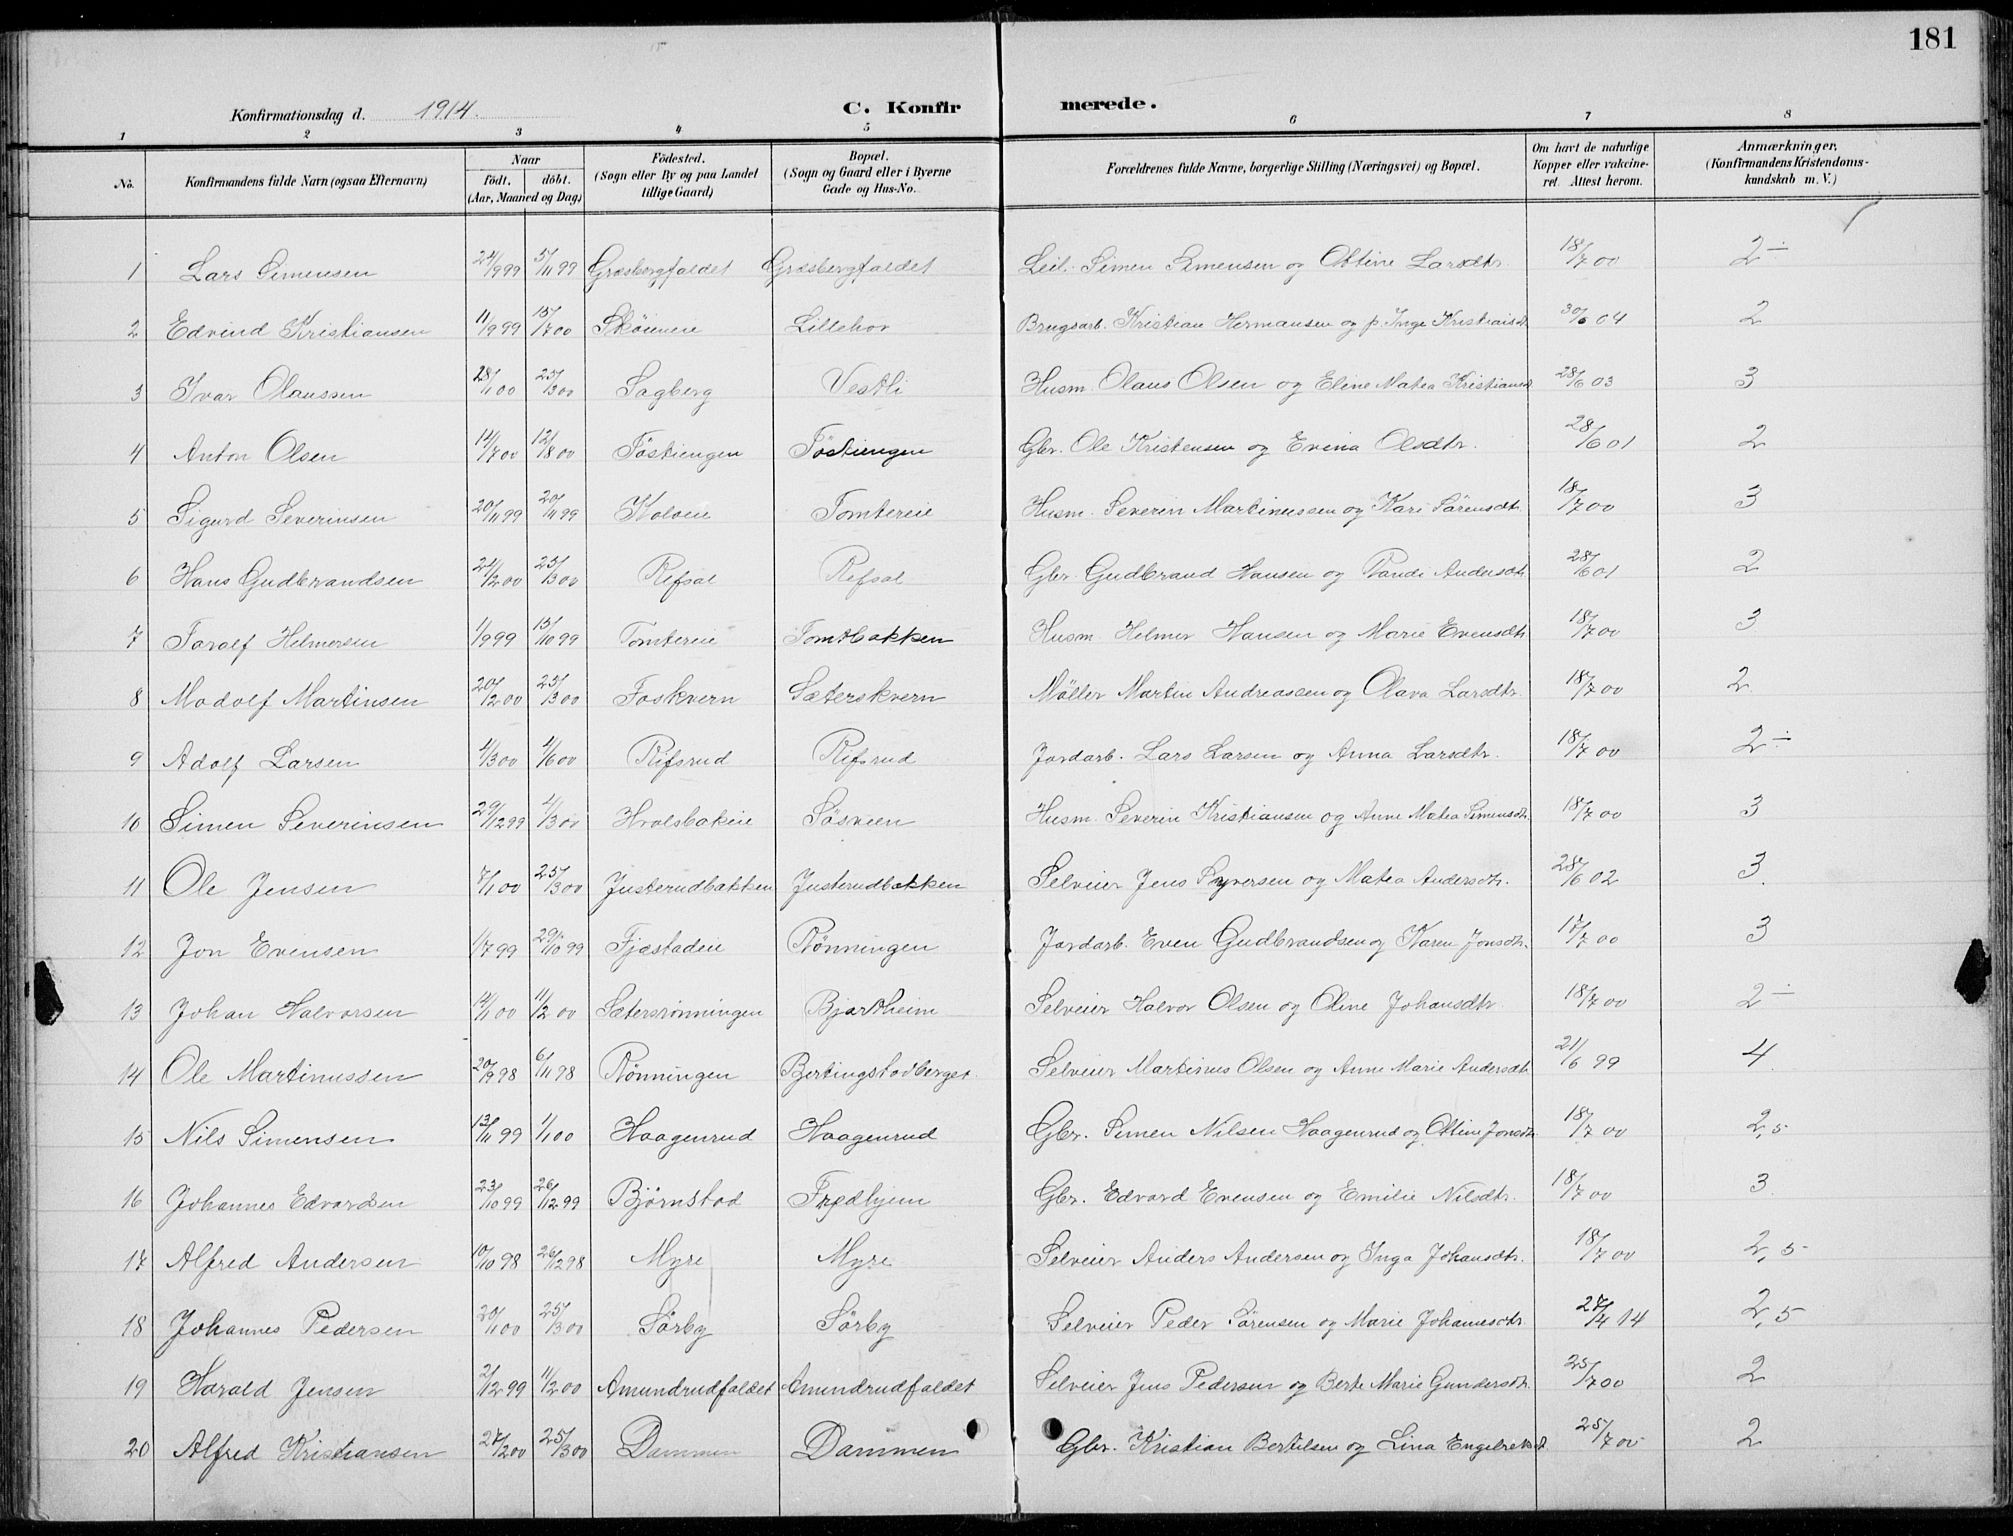 181
Konfirmationsdag d. 1914. C. Konfir merede.
1 2 3 4 5 6 7 8
No. Konfirmandens fulde Navn (ogsaa Efternavn) Naar födt, döbt. (Aar, Maaned og Dag) Födested. (Sogn eller By og paa Landet tillige Gaard) Bopæl. (Sogn og Gaard eller i Byerne Gade og Hus-No. Forældrenes fulde Navne, borgerlige Stilling (Næringsvei) og Bopæl. Om havt de naturlige Kopper eller vakcineret. Attest herom. Anmærkninger. (Konfirmandens Kristendomskundskab m. V.)
1 Lars Simensen 24/9 99 5/11 99 Græsbergfaldet Græsbergfaldet Leil. Simen Simensen og Ottine Larsdtr. 18/7 00 2÷
2 Edvind Kristiansen 11/9 99 15/7 00 Sköieneie Lillehov Brugsarb. Kristian Hermansen og p. Inge Kristiansdt. 30/6 04 2
3 Ivar Olaussen 28/1 00 25/3 00 Sagberg Vestli Husm. Olaus Olsen og Eline Matea Kristiansd. 28/6 03 3
4 Anton Olsen 14/7 00 12/8 00 Töstiengen Töstiengen Gbr. Ole Kristensen og Evina Olsdtr. 28/6 01 2
5 Sigurd Severinsen 20/11 99 20/11 99 Kolveie Tomtereie Husm. Severin Martinussen og Kari Sörensdt. 18/7 00 3
6 Hans Gudbrandsen 24/2 00 25/3 00 Refsal Refsal Gbr. Gudbrand Hansen og Randi Andersdt. 28/6 01 2
7 Toralf Helmersen 1/9 99 15/10 99 Tomtereie Tomtbakken Husm. Helmer Hansen og Marie Evensdtr. 18/7 00 3
8 Madolf Martinsen 20/2 00 25/3 00 Foskvern Sæterskvern Møller Martin Andreassen og Olava Larsdtr. 18/7 00 2
9 Adolf Larsen 4/3 00 4/6 00 Rifsrud Rifsrud Jordarb. Lars Larsen og Anna Larsdtr. 18/7 00 2÷
10 Simen Severinsen 29/12 99 4/3 00 Hvalsbakeie Sösveen Husm. Severin Kristiansen og Anne Matea Simensdt. 18/7 00 3
11 Ole Jensen 7/1 00 25/3 00 Justerudbakken Justerudbakken Selveier Jens Syversen og Matea Andersdtr. 28/6 02 3.
12 Jon Evensen 1/7 99 29/10 99 Fjæstadeie Rönningen Jordarb. Even Gudbrandsen og Karen Jonsdtr. 17/7 00 3
13 Johan Halvorsen 14/1 00 11/2 00 Sætersrønningen Bjartheim Selveier Halvor Olsen og Oline Johansdtr. 18/7 00 2÷
14 Ole Martinussen 20/9 98 6/11 98 Rönningen Bjertingstadberget Selveier Martinus Olsen og Anne Marie Andersdt. 21/6 99 4
15 Nils Simensen 13/11 99 1/1 00 Haagenrud Haagenrud Gbr. Simen Nilsen Haagenrud og Ottine Jonsdt. 18/7 00 2,5
16 Johannes Edvardsen 23/10 99 26/12 99 Bjørnstad Fredhjem Gbr. Edvard Evensen og Emilie Nilsdtr. 18/7 00 3
17 Alfred Andersen 10/10 98 26/12 98 Myre Myre Selveier Anders Andersen og Inga Johansdtr. 18/7 00 2,5
18 Johannes Pedersen 20/1 00 25/3 00 Sörby Sörby Selveier Peder Sörensen og Marie Johannesdtr. 27/4 14 2,5
19 Harald Jensen 21/12 99 11/2 00 Amundrudfaldet Amundrudfaldet Selveier Jens Pedersen og Berte Marie Gundersdt. 25/7 00 2
20 Alfred Kristiansen 27/2 00 25/3 00 Dammen Dammen Gbr. Kristian Bertilsen og Lina Engelretsd. 25/7 00 2